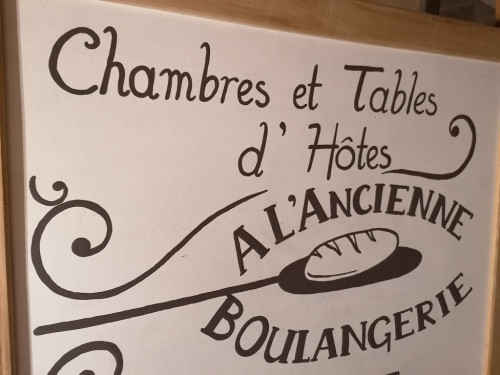 Chambres et Tables
d' Hôtes
A L'ANCIENNE
BOULANGERIE